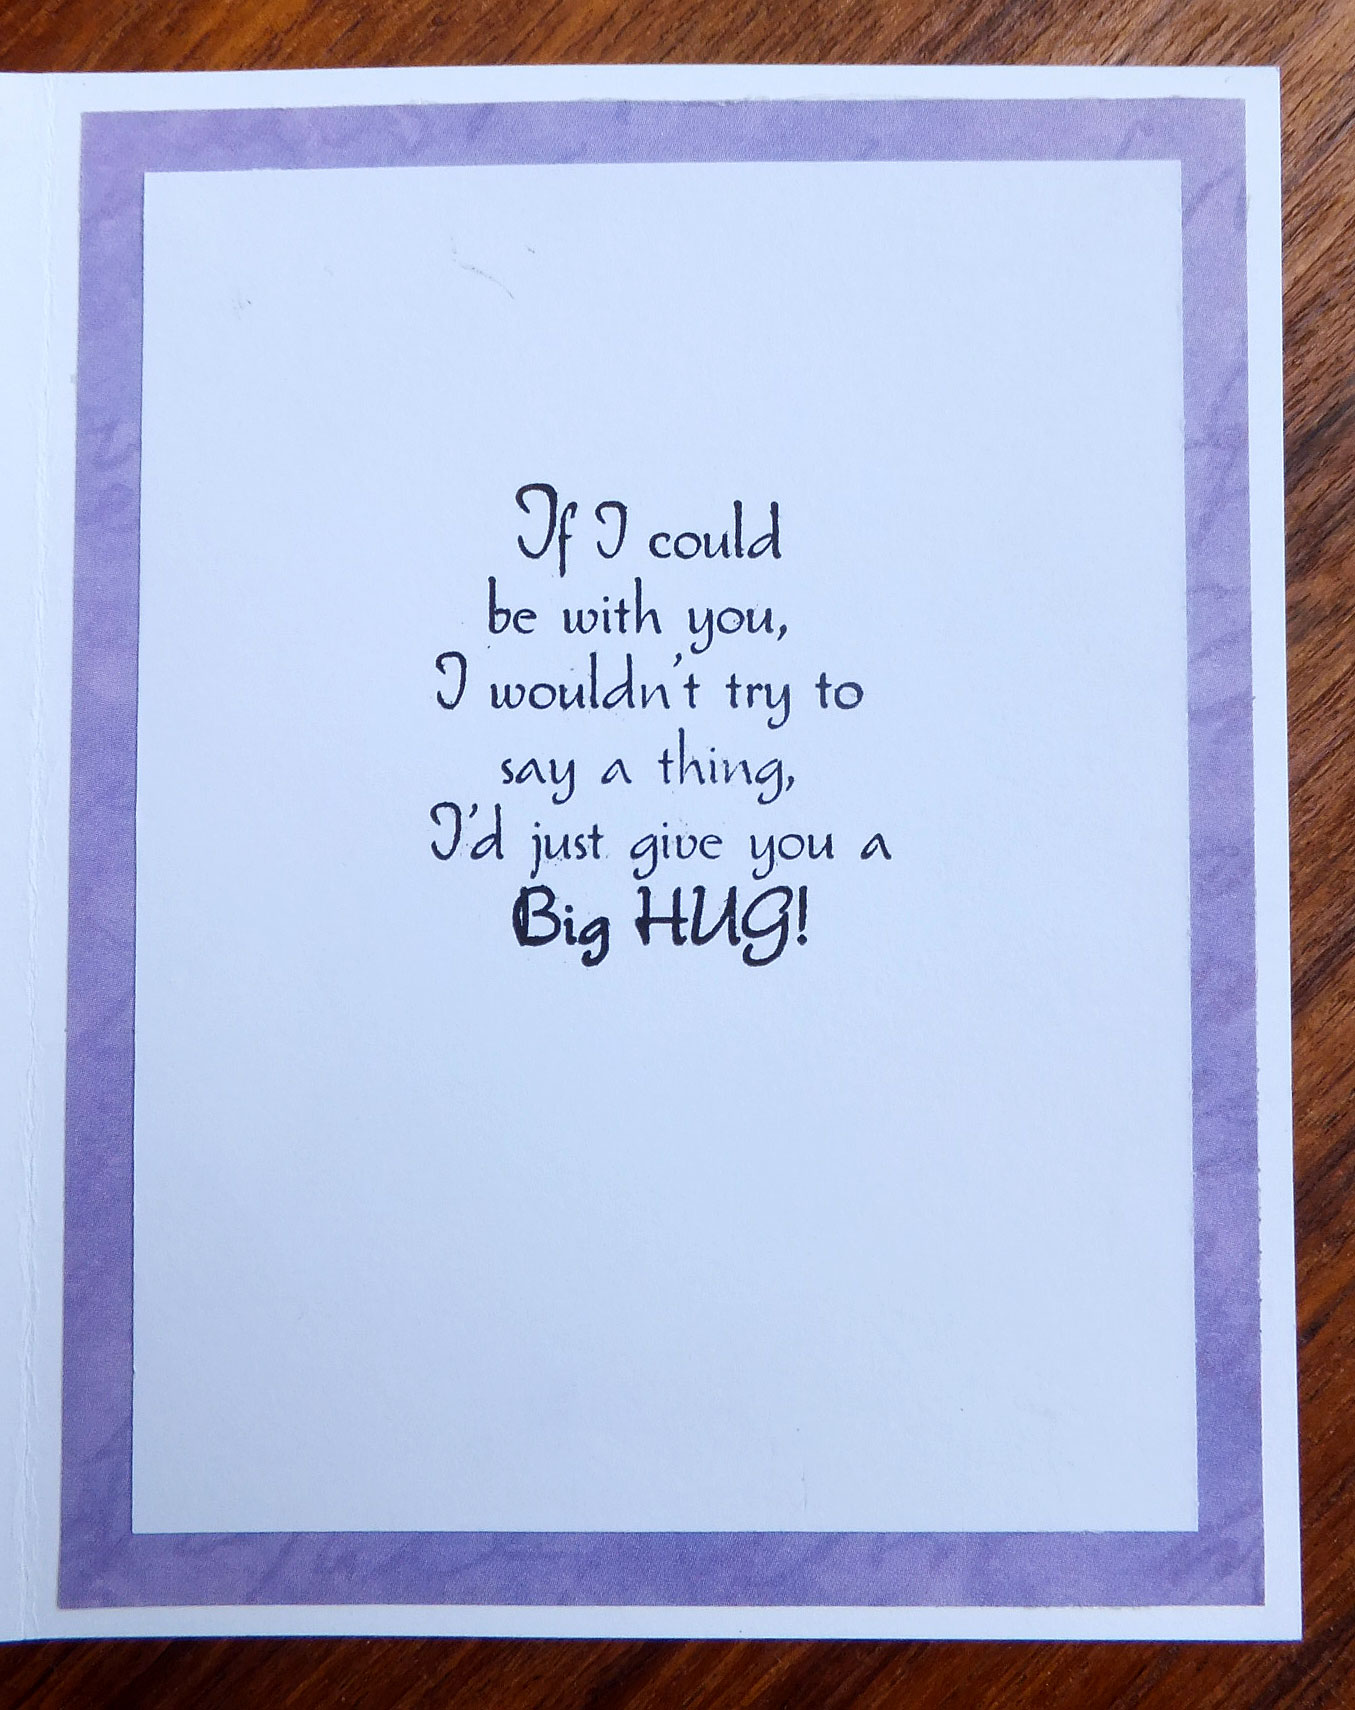 If I could
be with you,
I wouldn't try to
say a thing,
I'd just give you a
Big HUG!